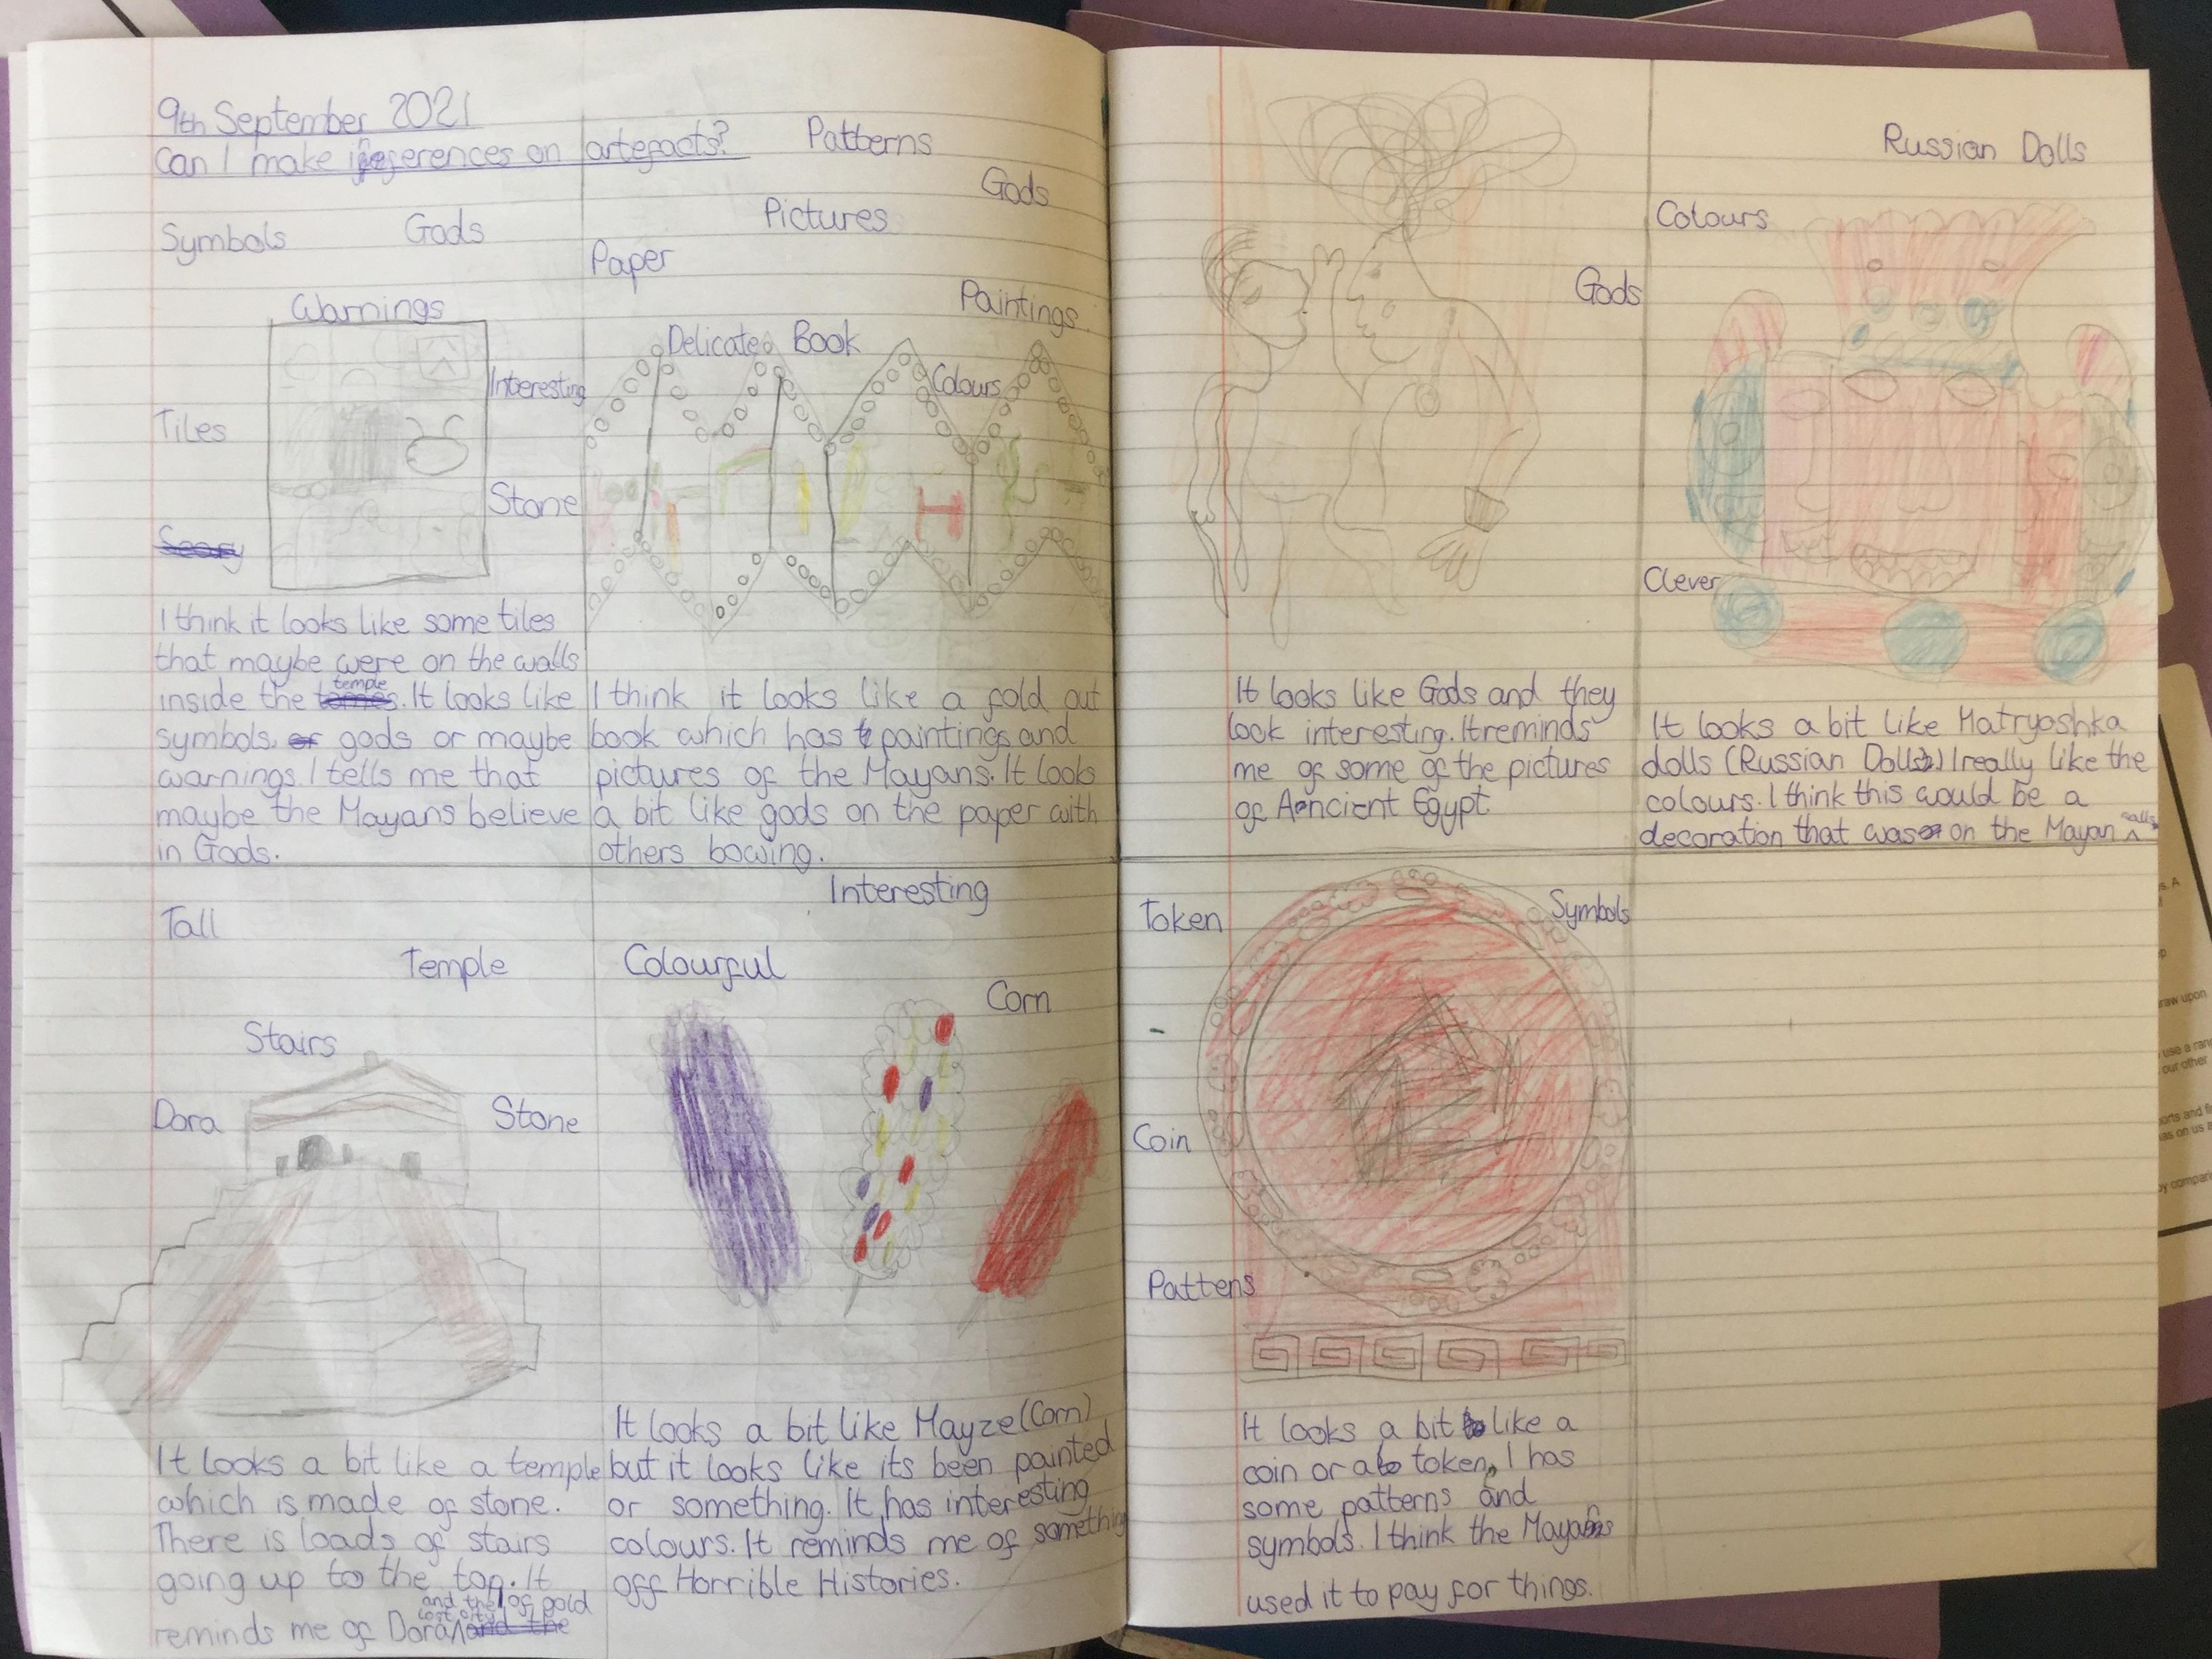 9th September 2021
Can I make inferences on artefacts?
Symbols
Gods
Warnings
Tiles
Interesting
Stone
Scary
I think it looks like some tiles
that maybe were on the walls
inside the temple. It looks like
symbols, gods or maybe
warnings. I tells me that
maybe the Mayans believe
in Gods.
Patterns
Gods
Pictures
Paper
Paintings
Delicate
Book
Colours
I think it looks like a fold out
book which has paintings and
pictures of the Mayans. It looks
a bit like gods on the paper with
others bowing.
Tall
Temple
Stairs
Dora
Stone
It looks a bit like a temple
which is made of stone.
There is loads of stairs
going up to the top. It
reminds me of Dora and the lost city of gold
Interesting
Colourful
Corn
It looks a bit like Mayze (Corn)
but it looks like its been painted
or something. It has interesting
colours. It reminds me of something
off Horrible Histories.
Gods
It looks like Gods and they
look interesting. It reminds
me of some of the pictures
of Ancient Egypt
Russian Dolls
Colours
Clever
It looks a bit like Matryoshka
dolls (Russian Dolls) I really like the
colours. I think this would be a
decoration that was on the Mayan walls
Token
Symbols
Coin
Pattens
It looks a bit like a
coin or a token, I has
some patterns and
symbols. I think the Mayans
used it to pay for things.